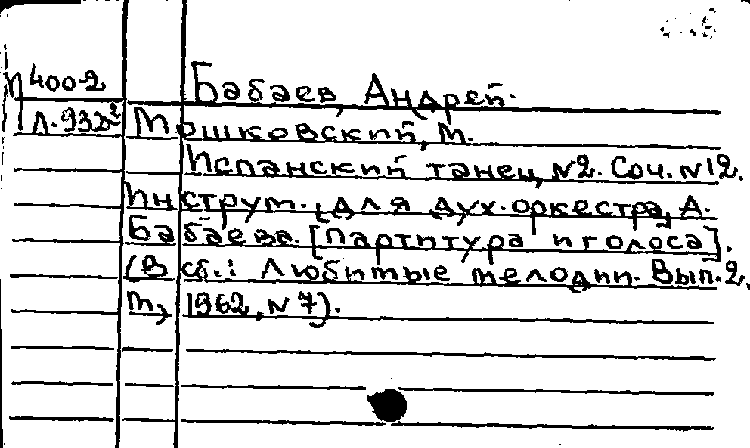 П 400-2
Л-932²
Бабаев, Андрей.
Мошковский, М.
Испанский танец, №2. Соч. №12.
Инструм. для дух. оркестра, А.
Бабаева. [Партитура и голоса].
(В сб.: Любимые мелодии. Вып. 2.
М., 1962, №7).